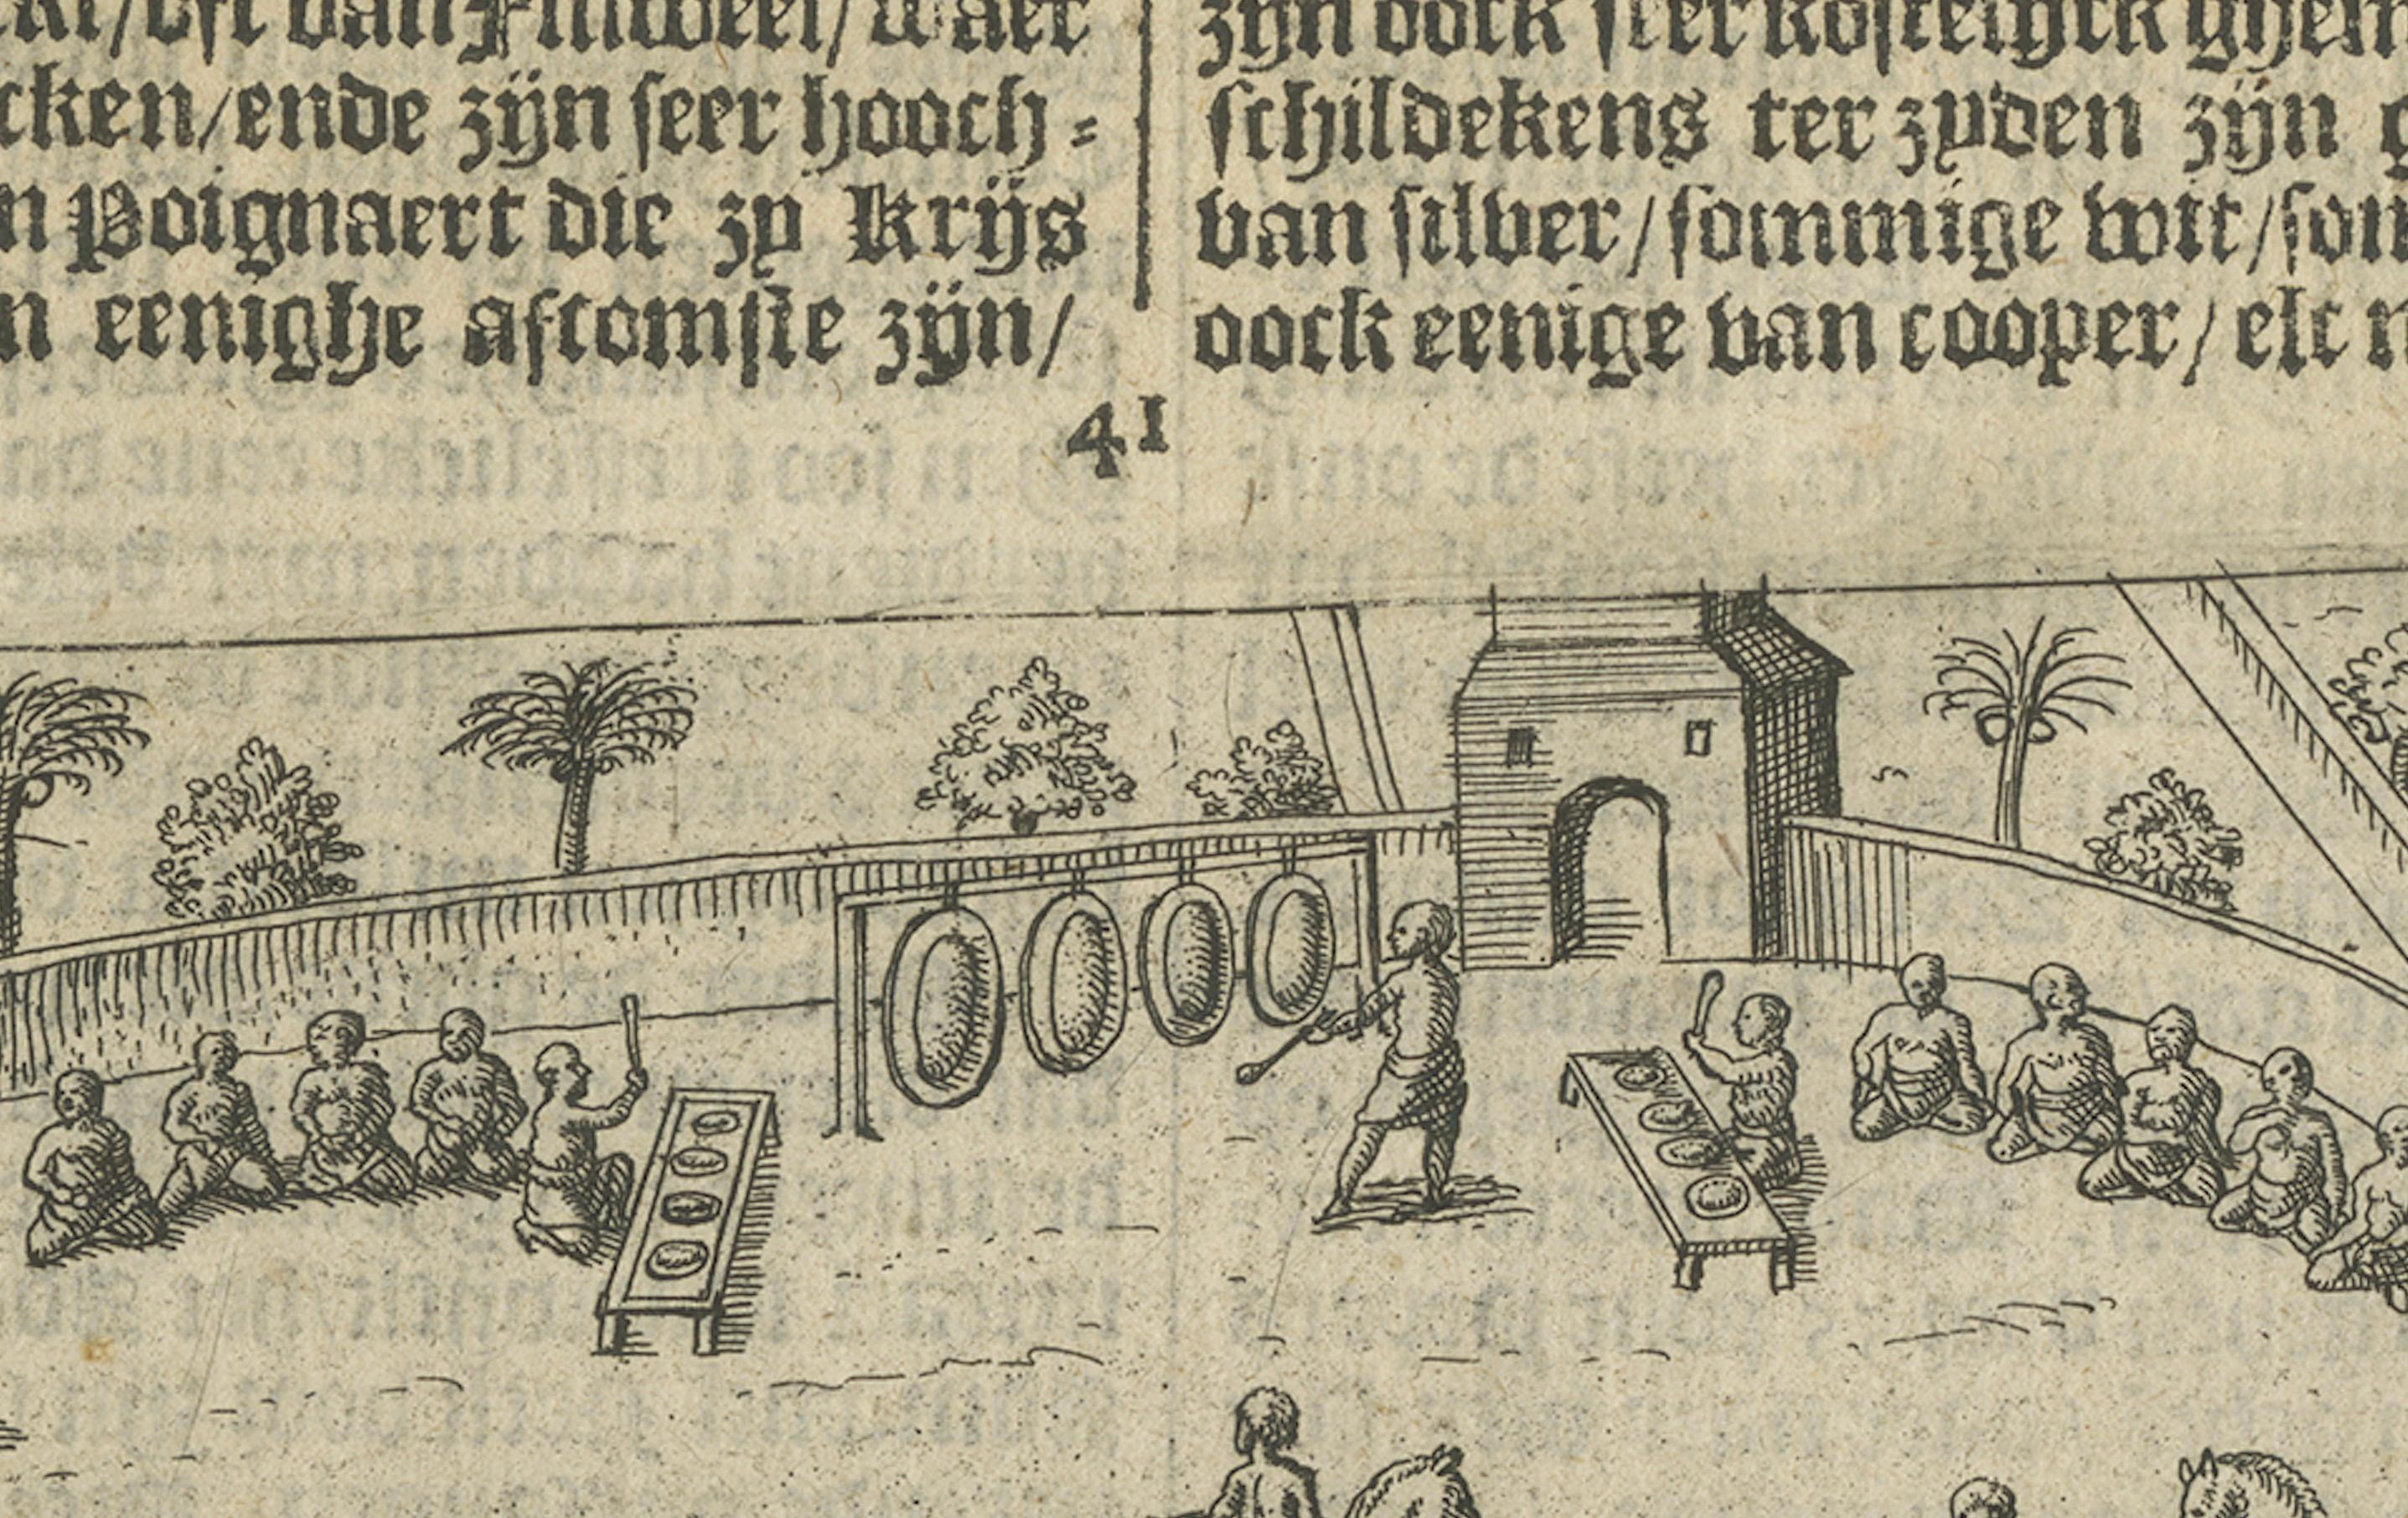 cken/ende zijn seer hooch⸗
n Poignaert die zy Krijs
n eenighe afcomste zijn/
zijn oock seer kostelijck ghem
schildekens ter zyden zijn g
van silver/sommige wit/som
oock eenige van cooper/elc m
41